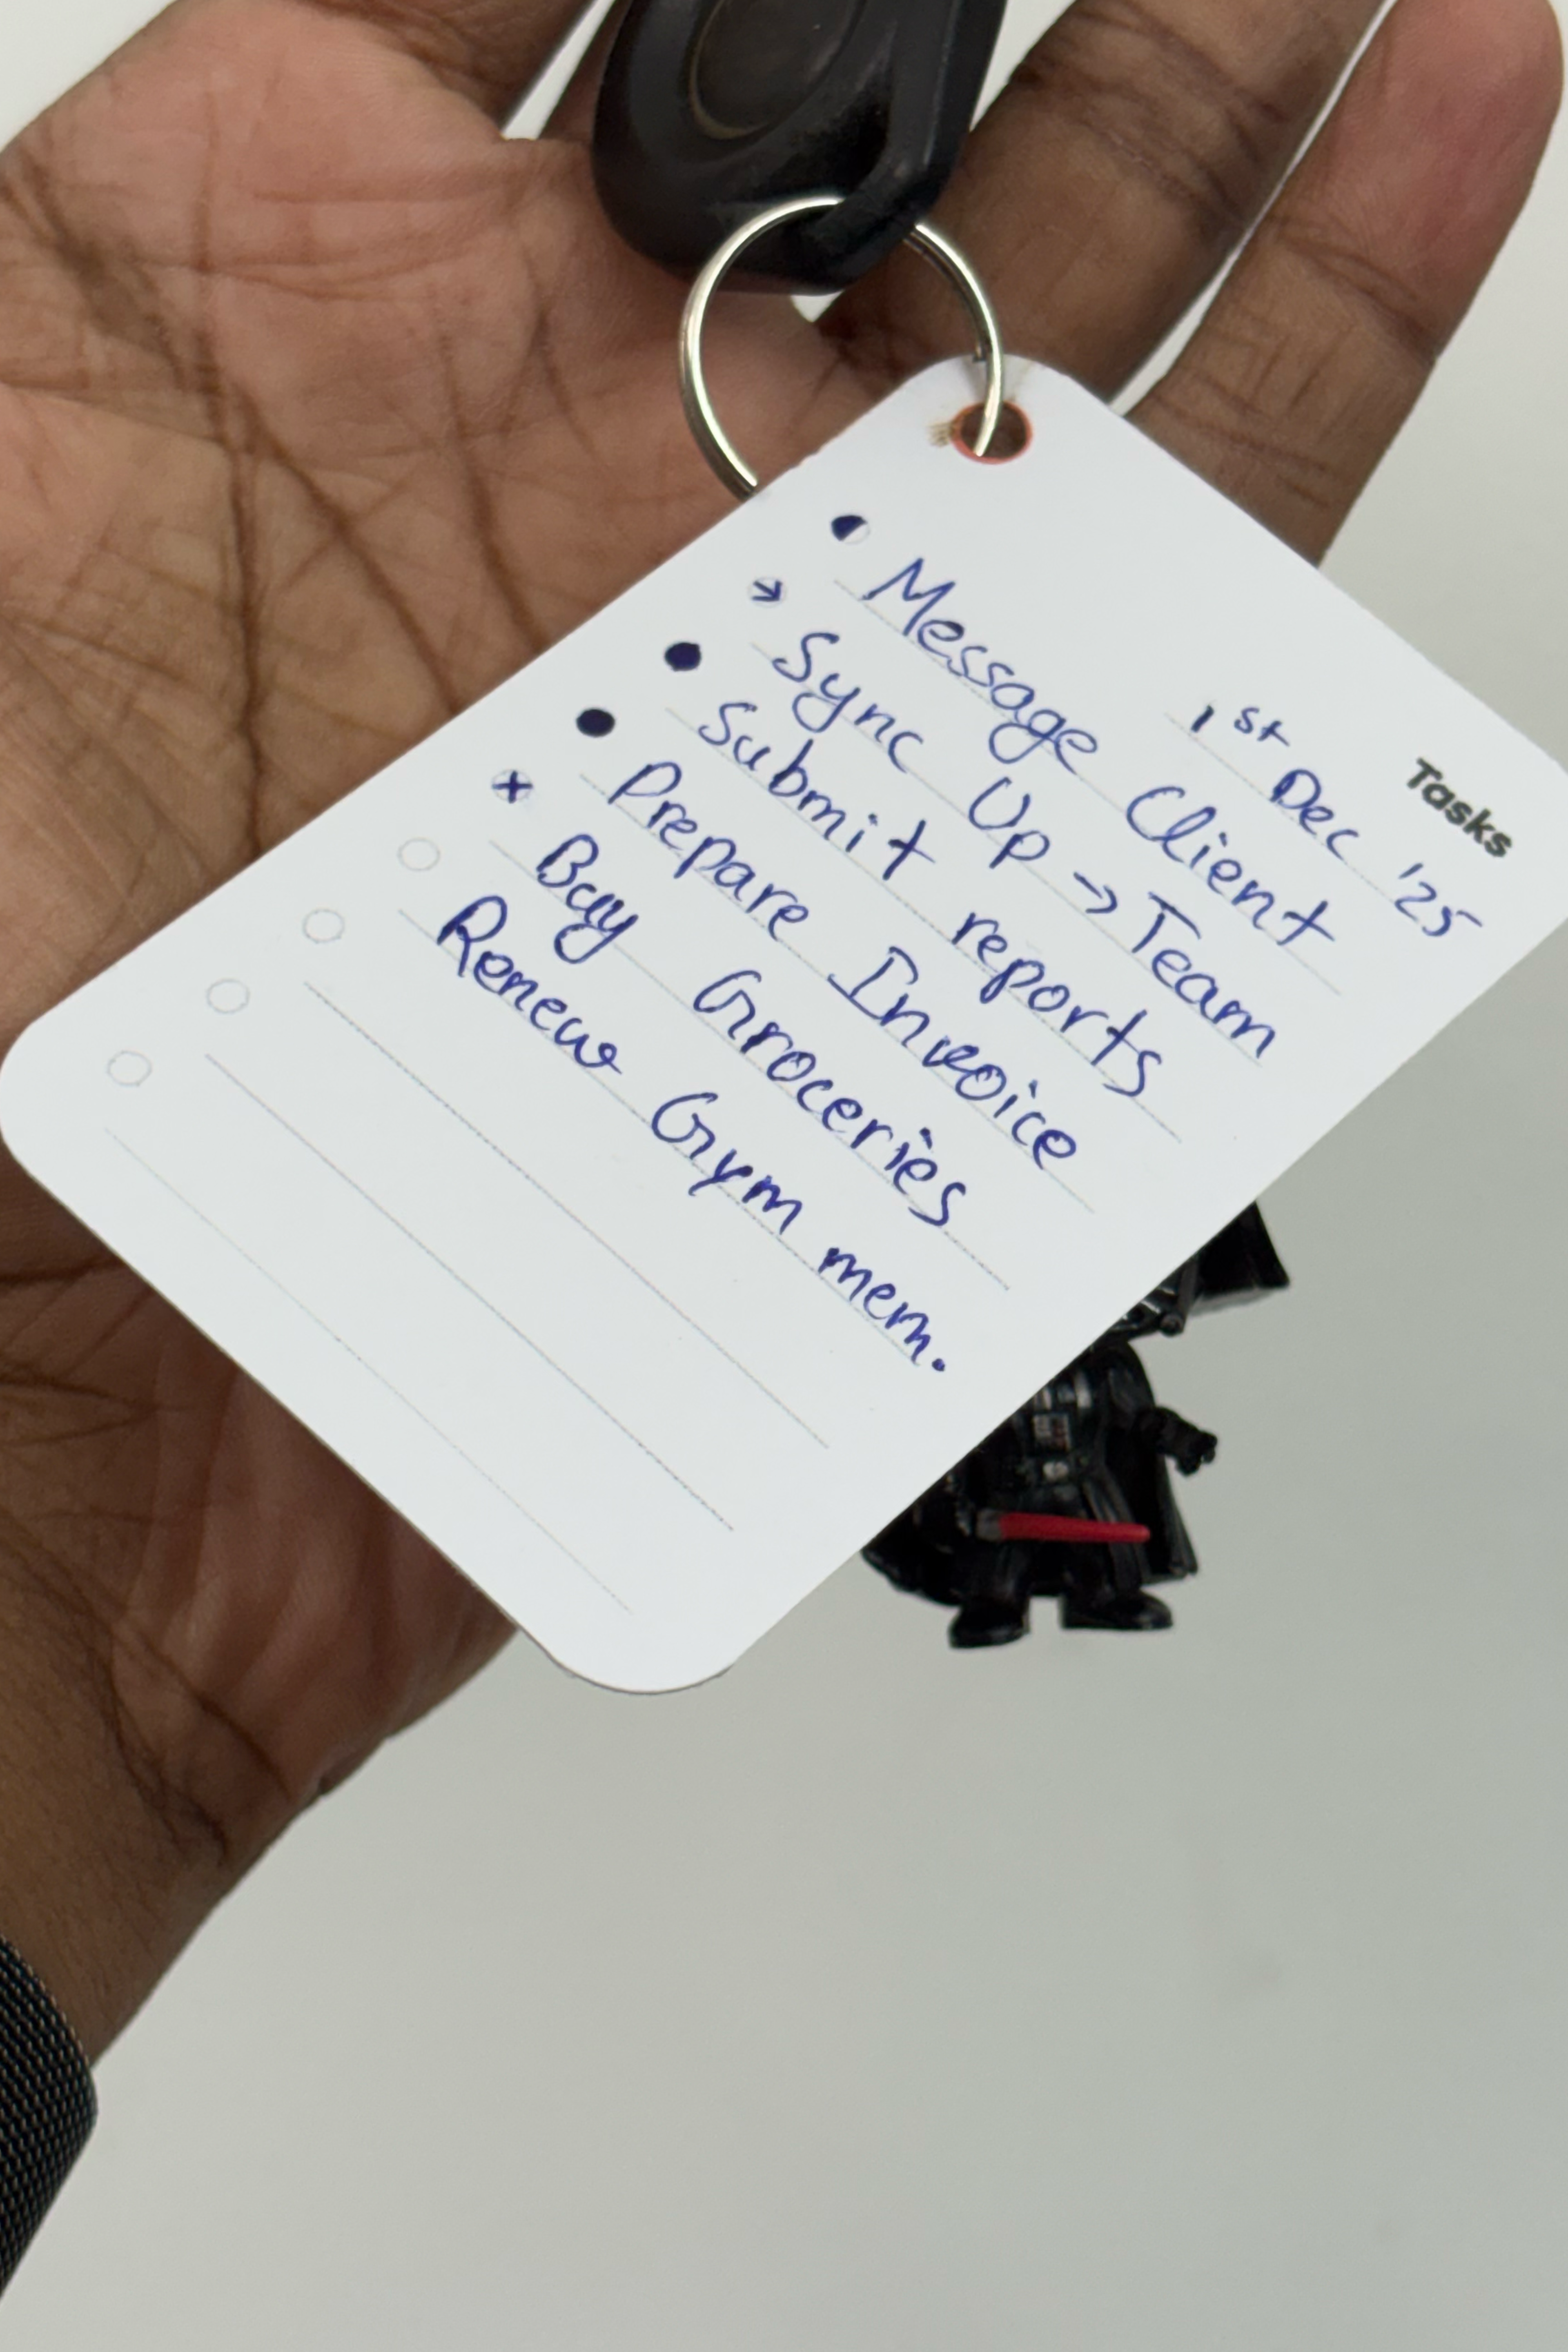 Tasks
1st Dec '25
Message Client
Sync Up → Team
Submit reports
Prepare Invoice
Buy Groceries
Renew Gym mem.